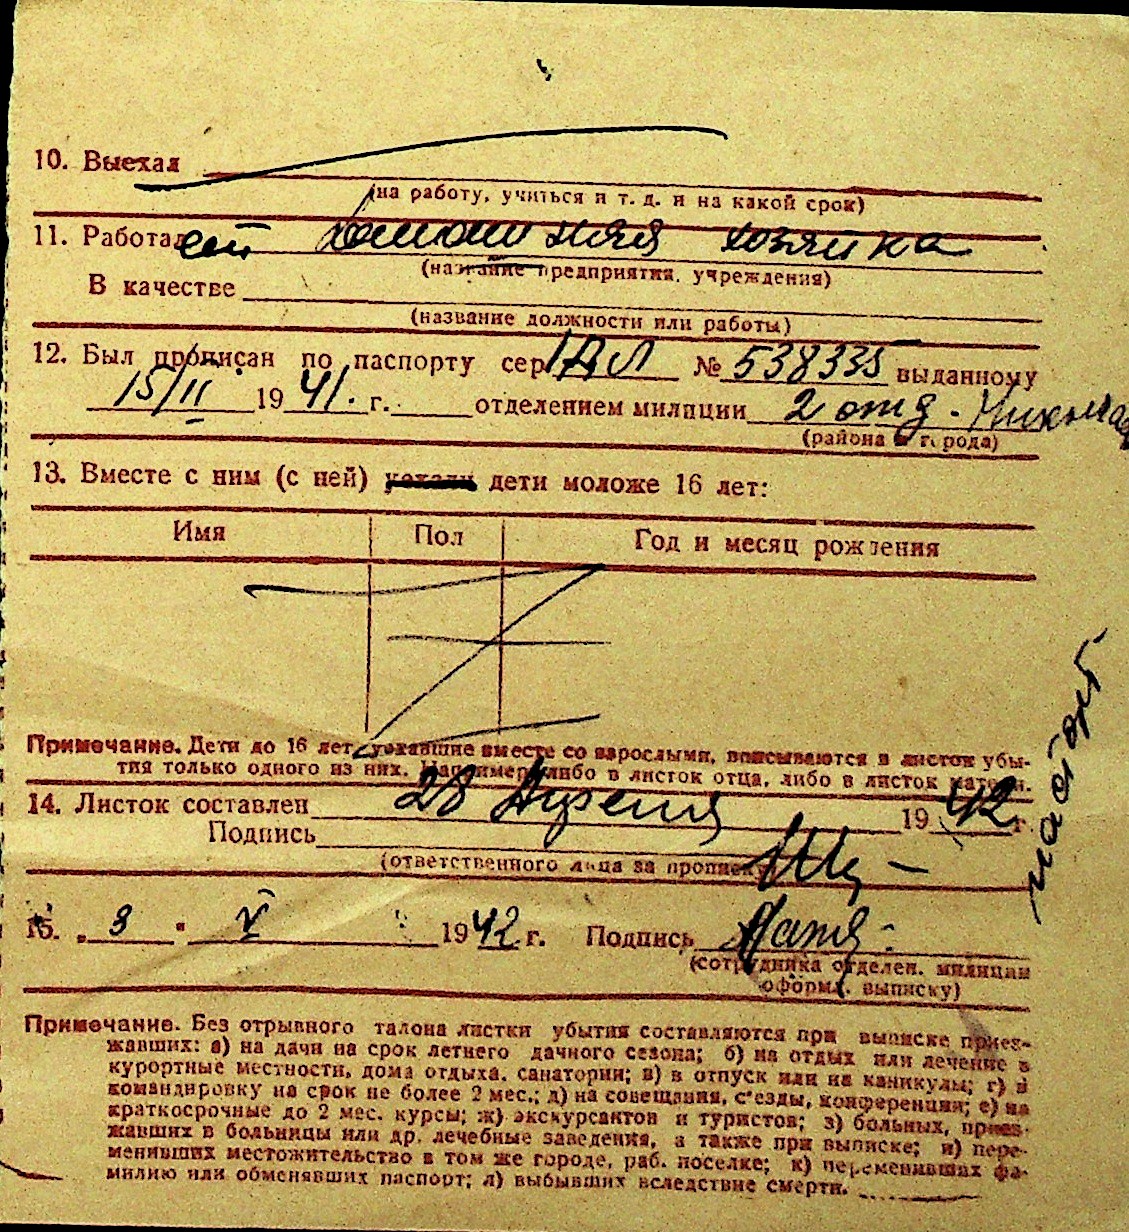 10. Выехал
(на работу, учиться и т. д. и на какой срок)
11. Работал домашняя хозяйка
(название предприятия, учреждения)
В качестве
(название должности или работы)
12. Был прописан по паспорту сер. № 538335 выданному
15/II 1941. г. отделением милиции 2 отд.
(района и города)
13. Вместе с ним (с ней) уехали дети моложе 16 лет:
Имя Пол Год и месяц рождения
Примечание. Дети до 16 лет, уехавшие вместе со взрослыми, вписываются в листок убы-
тия только одного из них. Например, либо в листок отца, либо в листок матери.
14. Листок составлен 28 Апреля 1942 г.
Подпись
(ответственного лица за прописку)
15. „3" V 1942 г. Подпись
(сотрудника отделен. милиции
оформ. выписку)
Примечание. Без отрывного талона листки убытия составляются при выписке приез-
жавших: а) на дачи на срок летнего дачного сезона; б) на отдых или лечение в
курортные местности, дома отдыха, санатории; в) в отпуск или на каникулы; г) в
командировку на срок не более 2 мес.; д) на совещания, с'езды, конференции; е) на
краткосрочные до 2 мес. курсы; ж) экскурсантов и туристов; з) больных, приез-
жавших в больницы или др. лечебные заведения, а также при выписке; и) пере-
менивших местожительство в том же городе, раб. поселке; к) переменивших фа-
милию или обменявших паспорт; л) выбывших вследствие смерти.